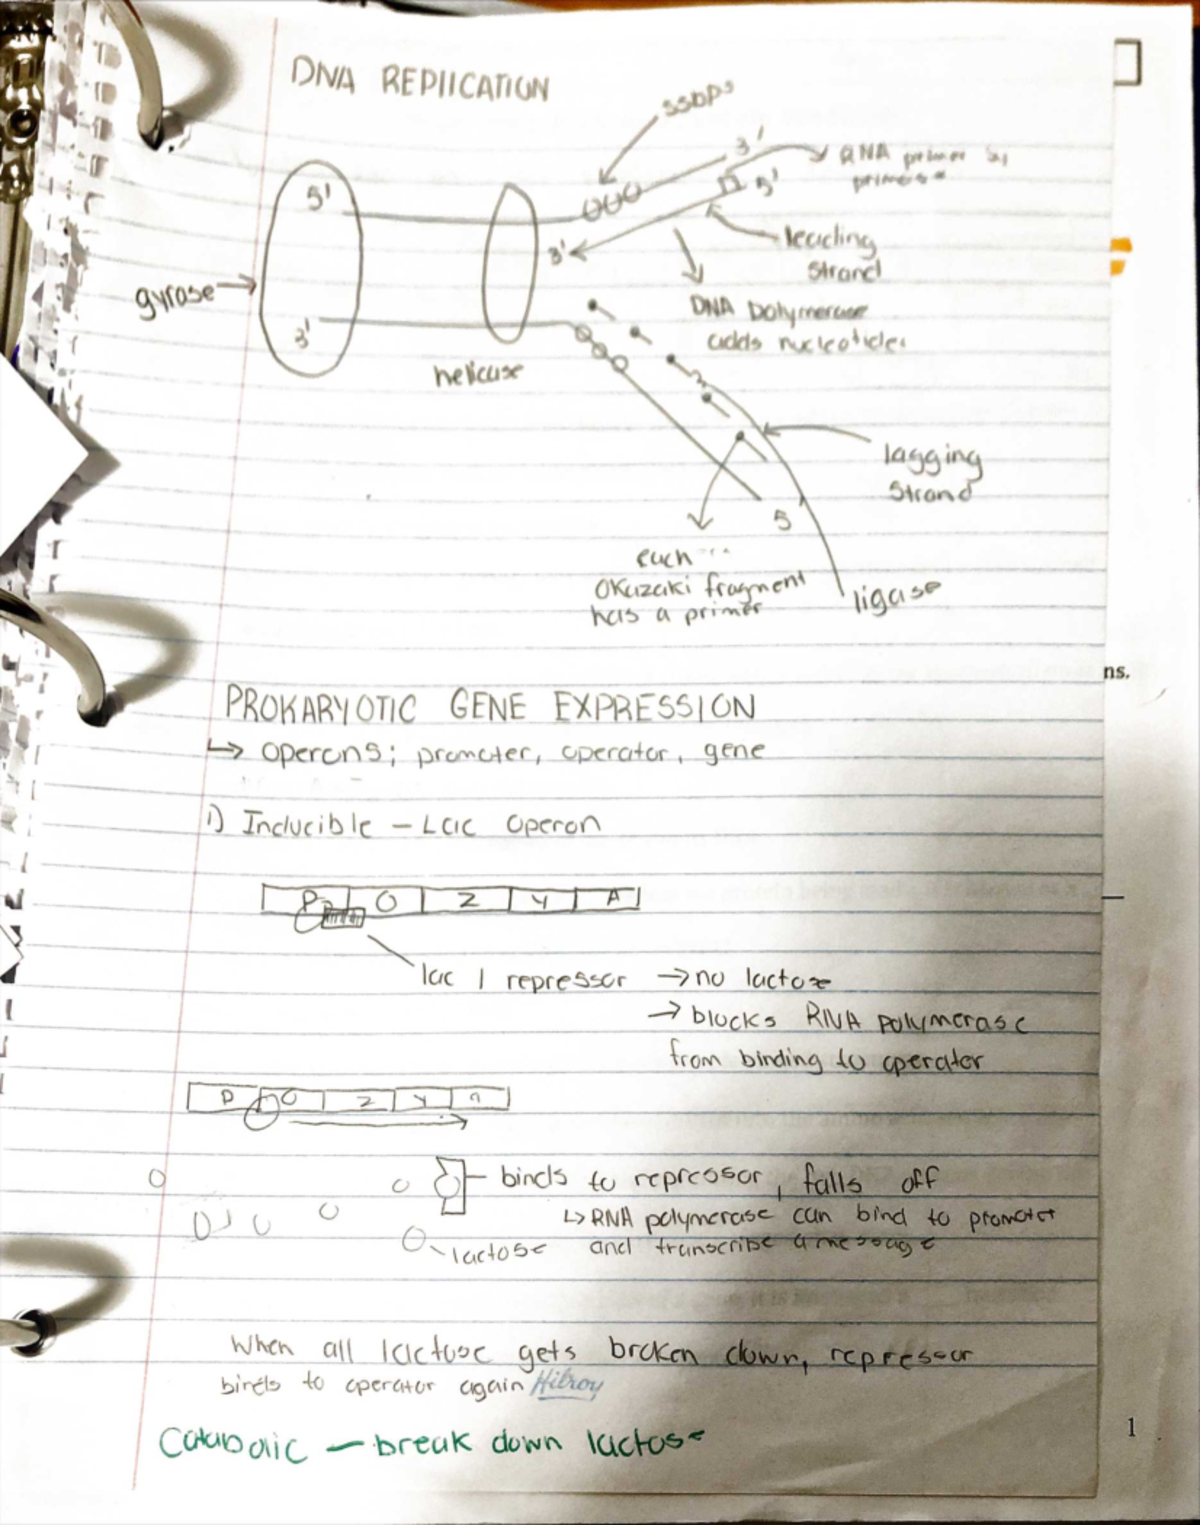 DNA REPLICATION
SSBPs
3'
RNA primer by
primase
5'
5'
3'
leading
strand
gyrase
DNA polymerase
adds nucleotides
3'
helicase
lagging
strand
5'
each
Okazaki fragment
has a primer
ligase
ns.
PROKARYOTIC GENE EXPRESSION
↳ operons; promoter, operator, gene
1) Inducible - Lac operon
P O Z Y A
lac I repressor → no lactose
→ blocks RNA polymerase
from binding to operator
P O Z Y A
binds to repressor, falls off
↳ RNA polymerase can bind to promoter
lactose and transcribe a message
When all lactose gets broken down, repressor
binds to operator again Hilroy
Catabolic — break down lactose
1